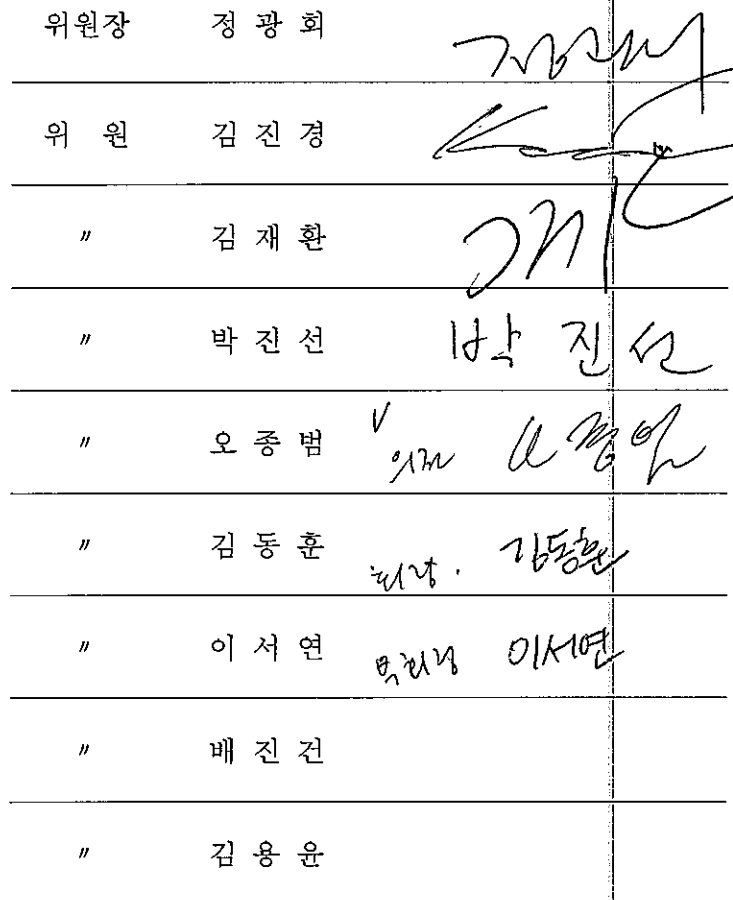 위원장 정 광 회
위 원 김 진 경
〃 김 재 환
〃 박 진 선 박 진 선
〃 오 종 범 의장
〃 김 동 훈 회장. 김동훈
〃 이 서 연 부회장 이서연
〃 배 진 건
〃 김 용 윤